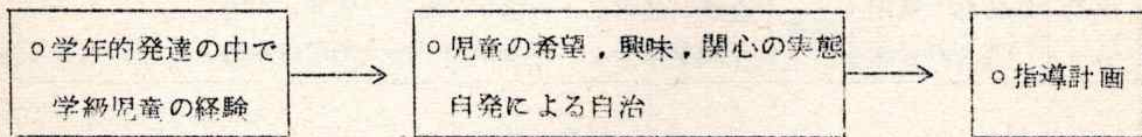 ○学年的発達の中で
学級児童の経験
○児童の希望，興味，関心の実態
自発による自治
○指導計画